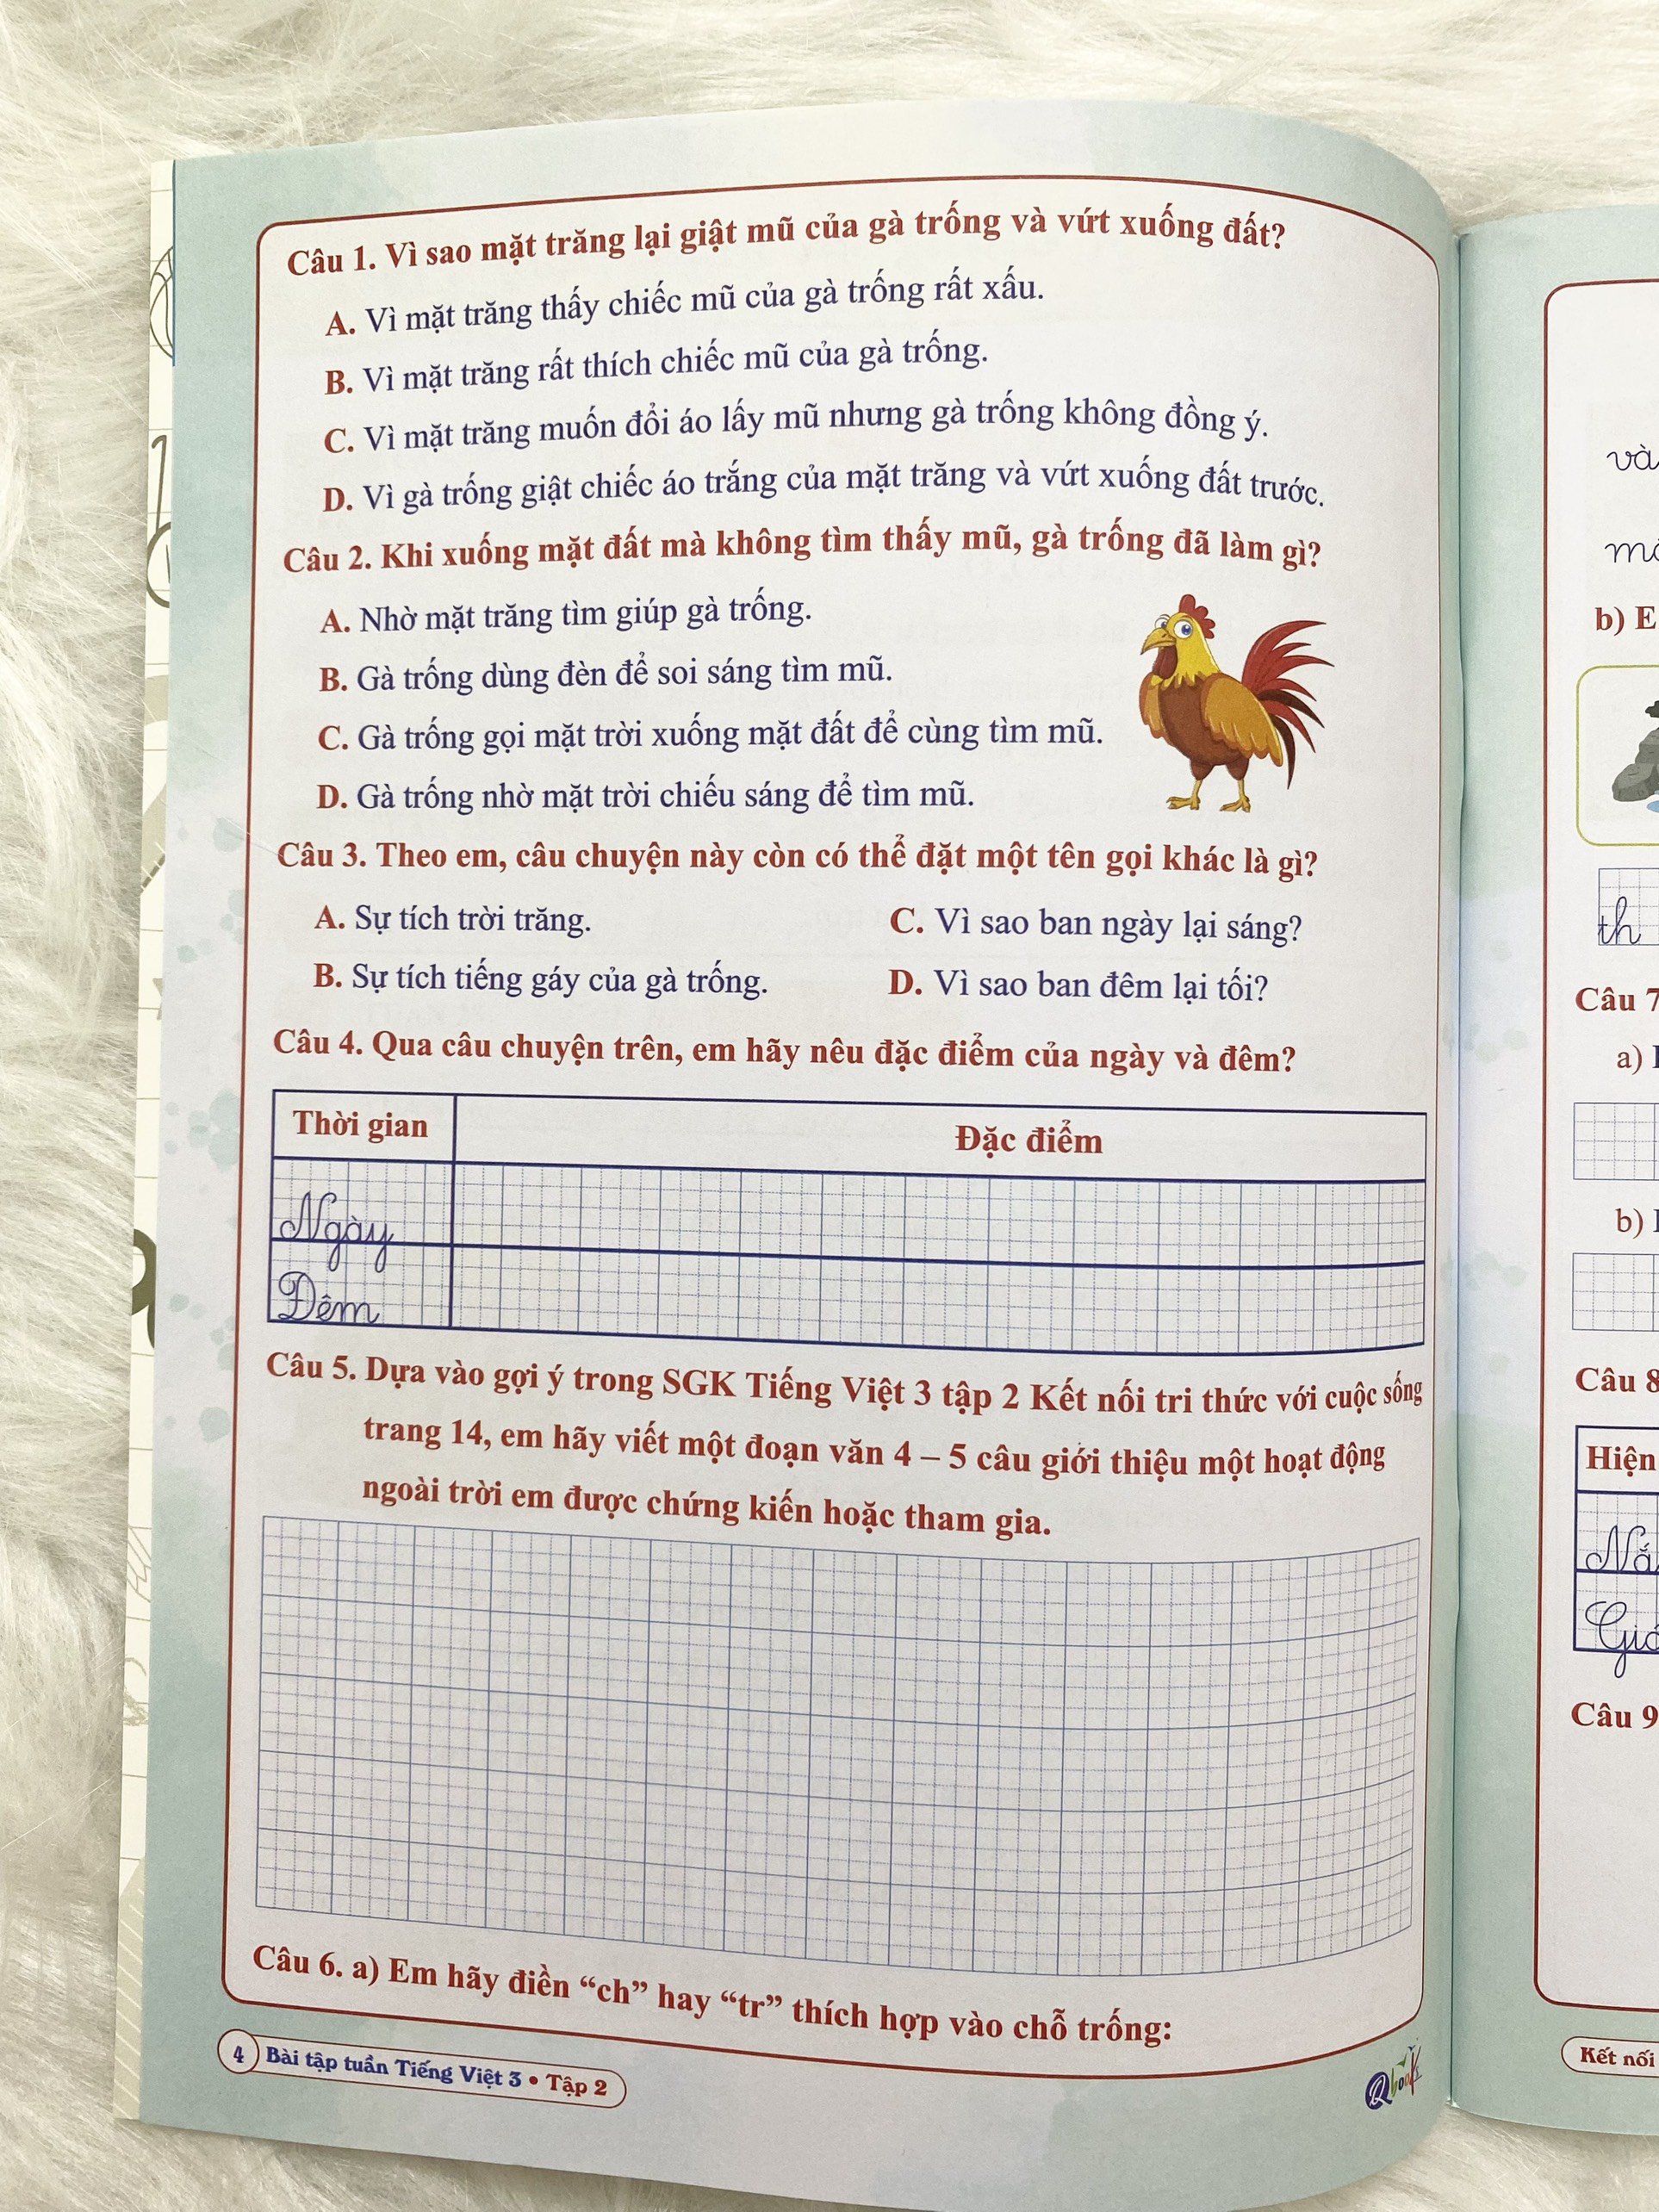 Câu 1. Vì sao mặt trăng lại giật mũ của gà trống và vứt xuống đất?
A. Vì mặt trăng thấy chiếc mũ của gà trống rất xấu.
B. Vì mặt trăng rất thích chiếc mũ của gà trống.
C. Vì mặt trăng muốn đổi áo lấy mũ nhưng gà trống không đồng ý.
D. Vì gà trống giật chiếc áo trắng của mặt trăng và vứt xuống đất trước.
Câu 2. Khi xuống mặt đất mà không tìm thấy mũ, gà trống đã làm gì?
A. Nhờ mặt trăng tìm giúp gà trống.
B. Gà trống dùng đèn để soi sáng tìm mũ.
C. Gà trống gọi mặt trời xuống mặt đất để cùng tìm mũ.
D. Gà trống nhờ mặt trời chiếu sáng để tìm mũ.
Câu 3. Theo em, câu chuyện này còn có thể đặt một tên gọi khác là gì?
A. Sự tích trời trăng.
C. Vì sao ban ngày lại sáng?
B. Sự tích tiếng gáy của gà trống.
D. Vì sao ban đêm lại tối?
Câu 4. Qua câu chuyện trên, em hãy nêu đặc điểm của ngày và đêm?
Thời gian
Đặc điểm
Ngày
Đêm
Câu 5. Dựa vào gợi ý trong SGK Tiếng Việt 3 tập 2 Kết nối tri thức với cuộc sống
trang 14, em hãy viết một đoạn văn 4 – 5 câu giới thiệu một hoạt động
ngoài trời em được chứng kiến hoặc tham gia.
Câu 6. a) Em hãy điền “ch” hay “tr” thích hợp vào chỗ trống:
4 Bài tập tuần Tiếng Việt 3 • Tập 2
Qbook
và
b) E
th
Câu 7
a)
b)
Câu 8
Hiện
Câu 9
Kết nối